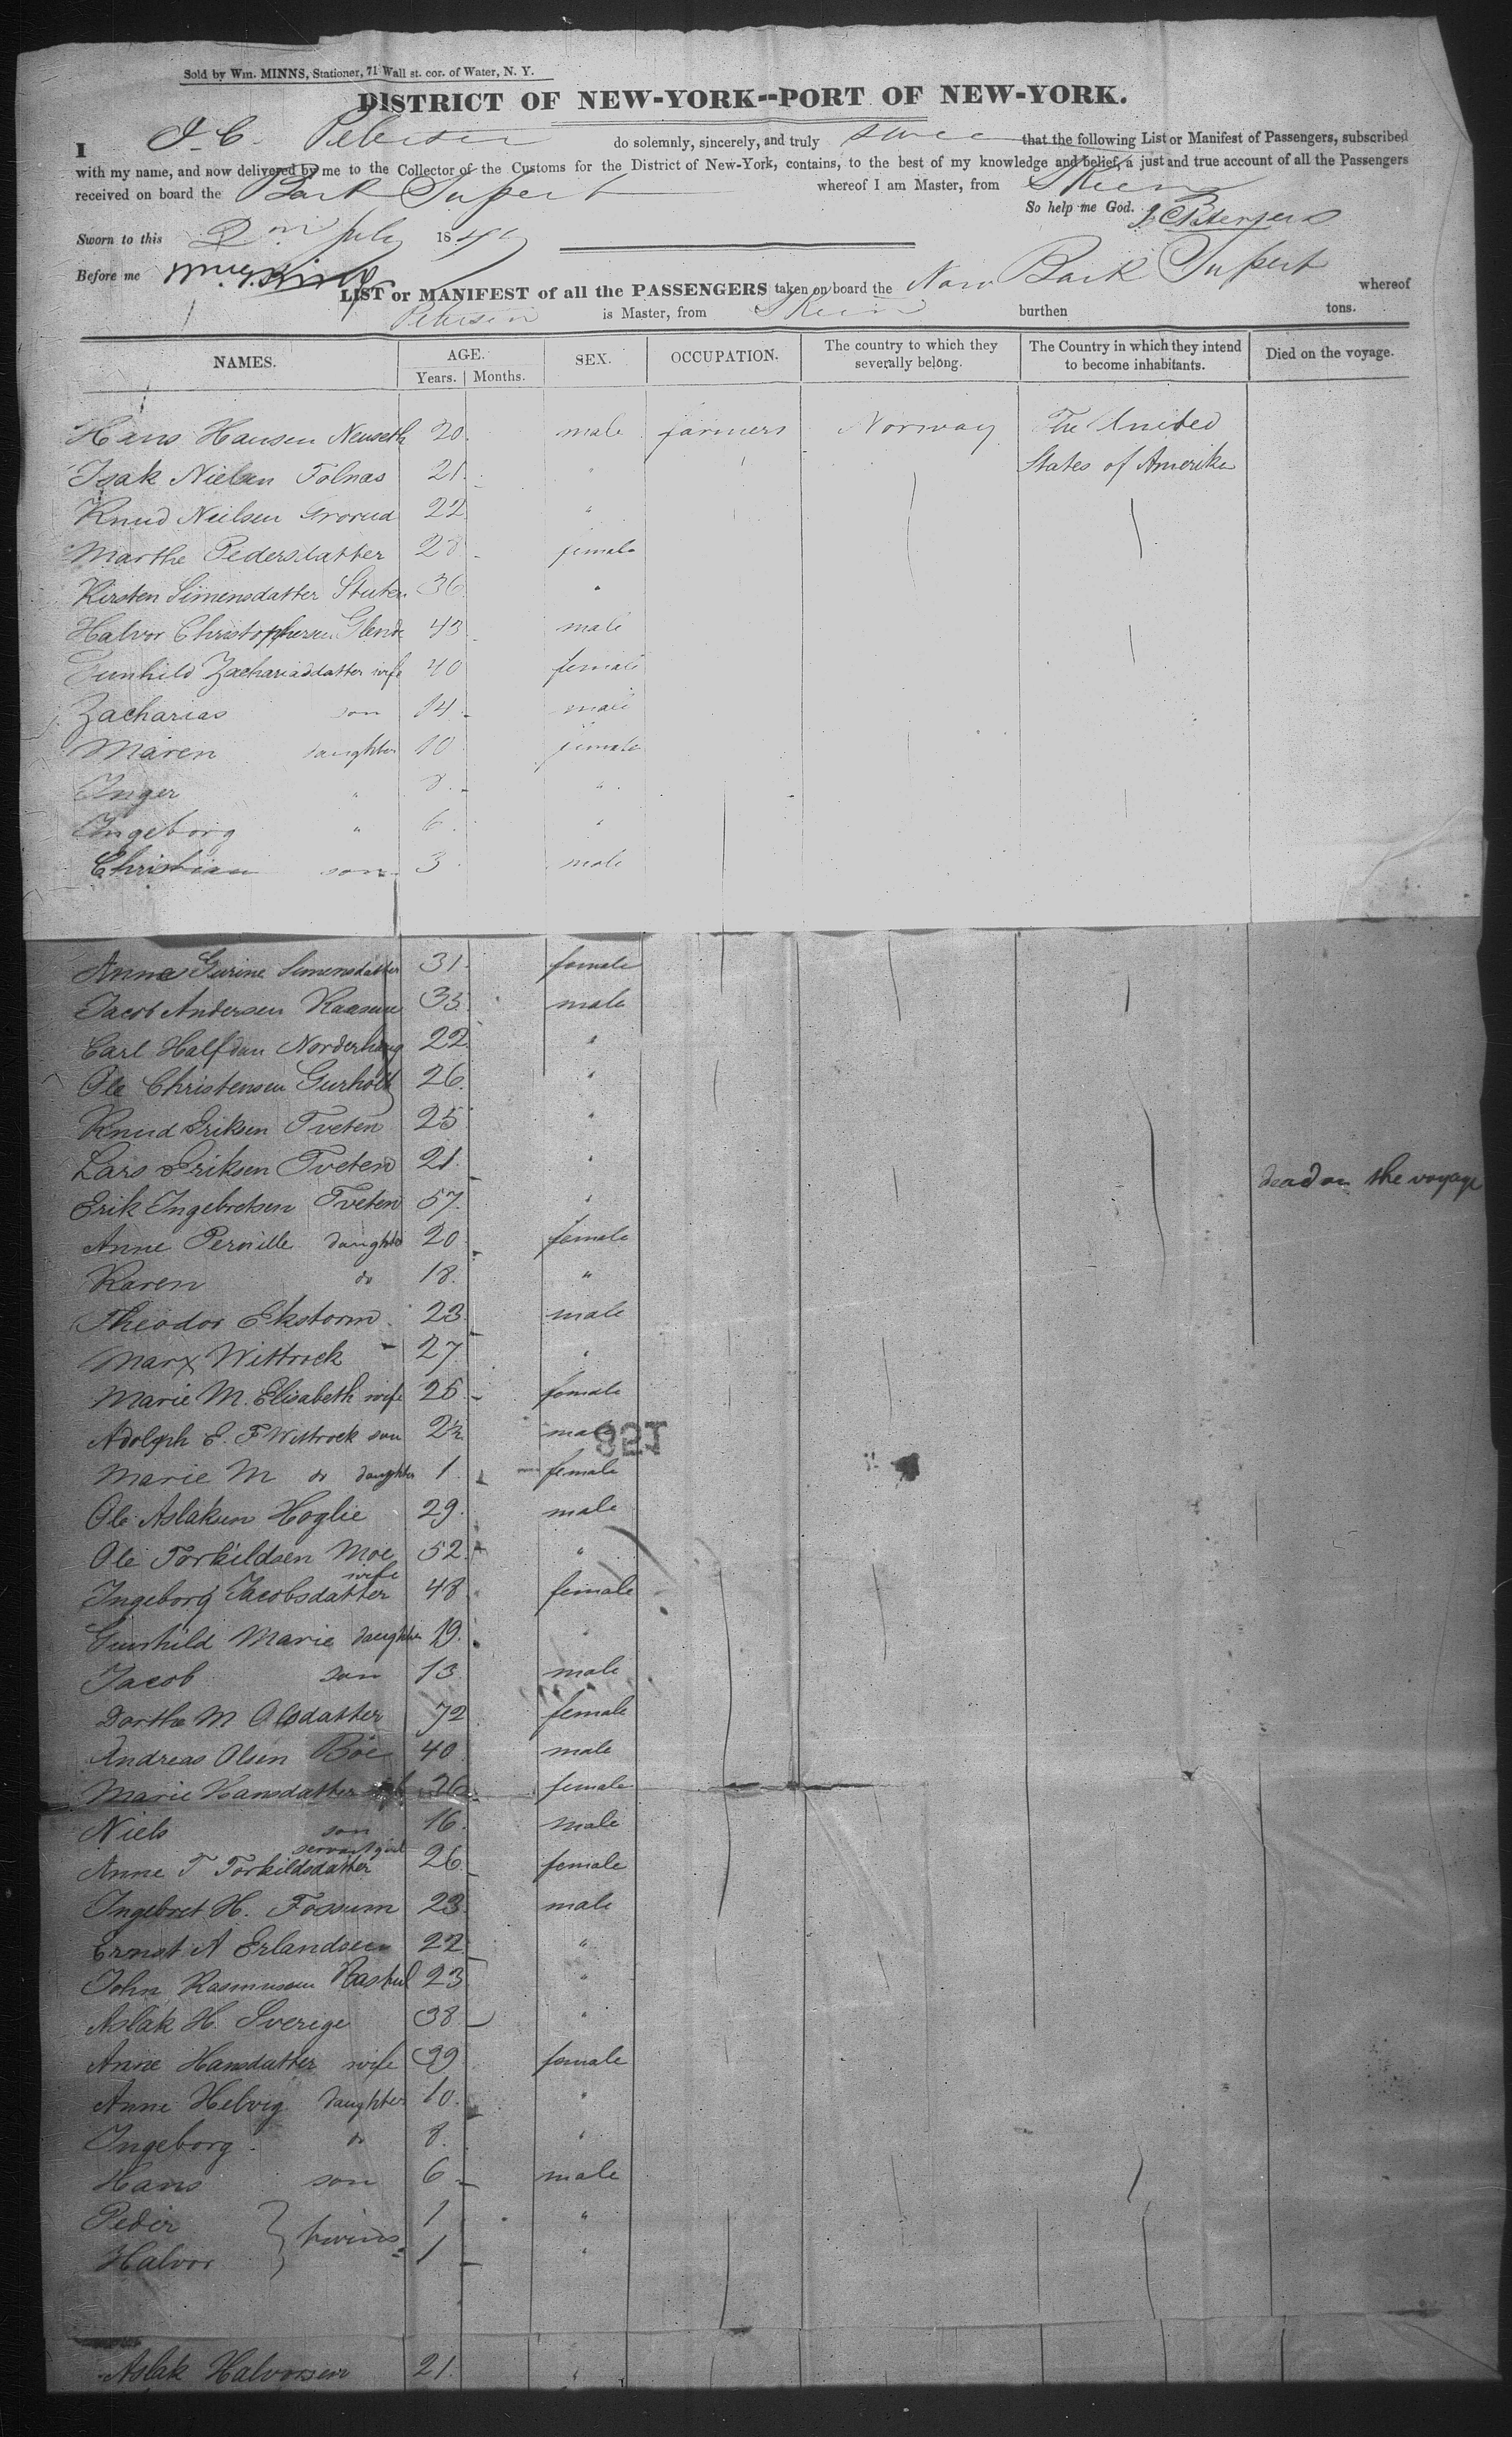 Sold by Wm. MINNS, Stationer, 71 Wall st. cor. of Water, N. Y.
DISTRICT OF NEW-YORK--PORT OF NEW-YORK.
I J. C. Petersen do solemnly, sincerely, and truly that the following List or Manifest of Passengers, subscribed
with my name, and now delivered by me to the Collector of the Customs for the District of New-York, contains, to the best of my knowledge and belief, a just and true account of all the Passengers
received on board the Bark whereof I am Master, from Skien
So help me God. J C Petersen
Sworn to this 2 July 184
Before me
LIST or MANIFEST of all the PASSENGERS taken on board the Norw Bark whereof
Petersen is Master, from Skien burthen tons.
NAMES. AGE. Years. Months. SEX. OCCUPATION. The country to which they severally belong. The Country in which they intend to become inhabitants. Died on the voyage.
Hans Hansen Neuseth 20. male farmers Norway The United
Isak Nielsen Tolnas 21. " States of Amerika
Knud Nielsen Grorud 22 "
Marthe Pedersdatter 28 female
Kirsten Simensdatter 36 "
Halvor Christophersen 43 male
Gunhild Zachariasdatter wife 40 female
Zacharias son 14 male
Maren daughter 10 female
Inger " 8. "
Ingeborg " 6. "
Christian son 3 male
Anne Gurine Simensdatter 31. female
Jacob Andersen 35. male
Carl Halfdan Norderhaug 22. "
Ole Christensen Gurholt 26. "
Knud Eriksen Tveten 25 "
Lars Eriksen Tveten 21. "
Erik Ingebretsen Tveten 57. " dead on the voyage
Anne Pernille daughter 20 female
Karen do 18. "
Theodor Ekstorm 23. male
Marx Wittrock 27 "
Marie M. Elisabeth wife 25. female
Adolph E. F Wittrock son 2½ male
Marie M do daughter 1. female
Ole Aslaksen Hoglie 29. male
Ole Torkildsen Moe 52. "
Ingeborg Jacobsdatter wife 48. female
Gunhild Marie daughter 19. "
Jacob son 13. male
Dorthe M Olsdatter 72 female
Andreas Olsen Böe 40 male
Marie Hansdatter female
Niels son 16. male
Anne T Torkildsdatter servant girl 26. female
Ingebret H. Fossum 23. male
Ernst A Erlandsen 22 "
John Rasmussen 23 "
Aslak H. Sverige 38 "
Anne Hansdatter wife 39 female
Anne Helvig daughter 10. "
Ingeborg do 8. "
Hans son 6 male
Peder } twins 1 "
Halvor 1 "
Aslak Halvorsen 21. "